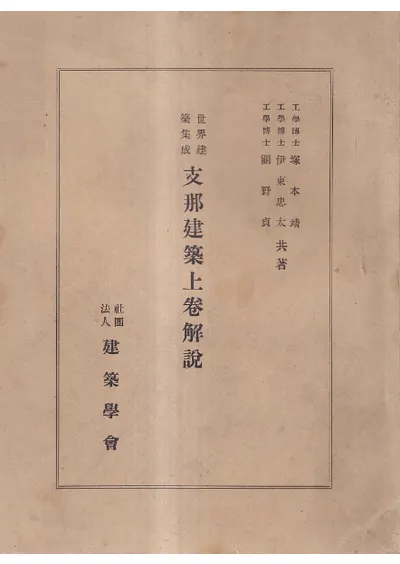 工學博士 塚本靖
工學博士 伊東忠太 共著
工學博士 關野貞
世界建
築集成
支那建築上卷解說
社團
法人
建築學會